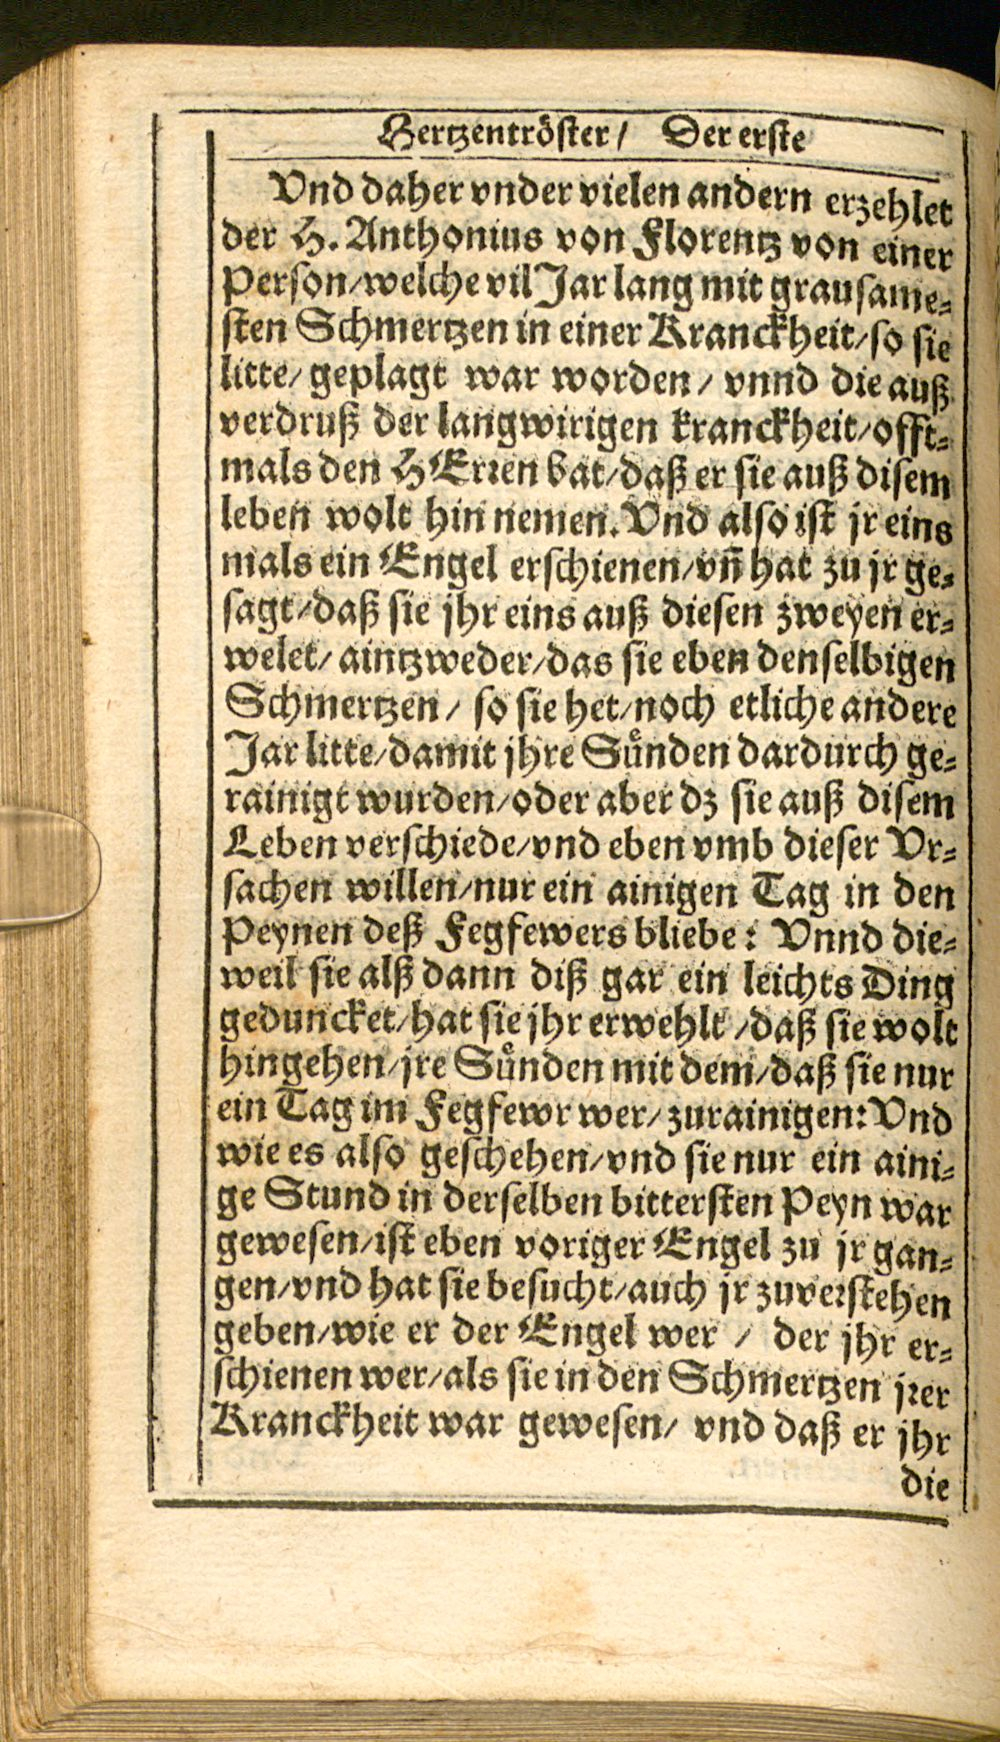 Hertzentröster / Der erste
Vnd daher vnder vielen andern erzehlet
der H. Anthonius von Florentz von einer
Person/welche vil Jar lang mit grausame-
sten Schmertzen in einer Kranckheit/so sie
litte/ geplagt war worden / vnnd die auß
verdruß der langwirigen kranckheit/offt-
mals den HErren bat/daß er sie auß disem
leben wolt hin nemen. Vnd also ist jr eins
mals ein Engel erschienen/vñ hat zu jr ge-
sagt/daß sie jhr eins auß diesen zweyen er-
welet/ aintzweder/das sie eben denselbigen
Schmertzen / so sie het/noch etliche andere
Jar litte/damit jhre Sünden dardurch ge-
rainigt wurden/oder aber dz sie auß disem
Leben verschiede/vnd eben vmb dieser Vr-
sachen willen/nur ein ainigen Tag in den
Peynen deß Fegfewers bliebe: Vnnd die-
weil sie alß dann diß gar ein leichts Ding
geduncket/hat sie jhr erwehlt /daß sie wolt
hingehen/jre Sünden mit dem/daß sie nur
ein Tag im Fegfewr wer/ zurainigen: Vnd
wie es also geschehen/vnd sie nur ein aini-
ge Stund in derselben bittersten Peyn war
gewesen/ist eben voriger Engel zu jr gan-
gen/vnd hat sie besucht/auch jr zuverstehen
geben/wie er der Engel wer / der jhr er-
schienen wer/als sie in den Schmertzen jrer
Kranckheit war gewesen/ vnd daß er jhr
die